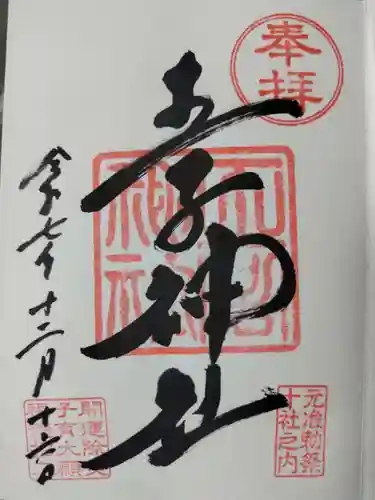 奉拝
王子神社
令和七年十二月十六日
元准勅祭
十社之内
開運除災
子育大願